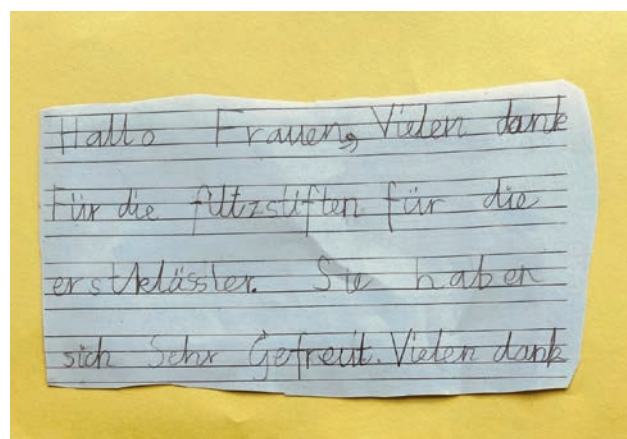 Hallo Frauen, Vielen dank
Für die filtzstiften für die
erstklässler. Sie haben
sich Sehr Gefreut. Vielen dank